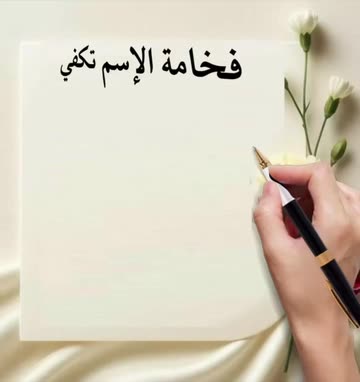 فخامة الإسم تكفي